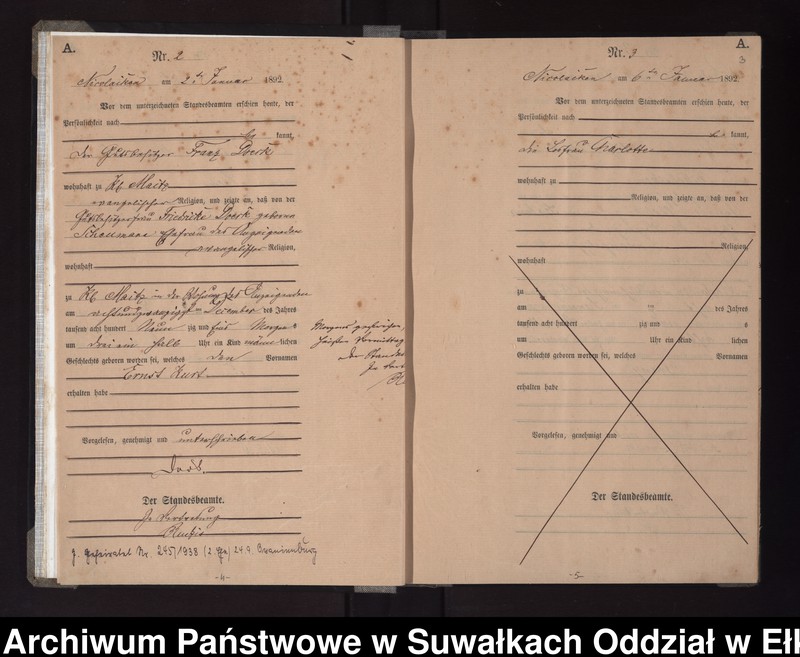 A.
Nr. 2
Nicolaiken am 2ten Januar 1892
Vor dem unterzeichneten Standesbeamten erschien heute, der
Persönlichkeit nach
be kannt,
der Gutsbesitzer Franz Doerk
wohnhaft zu Kl. Maitz
evangelischer Religion, und zeigte an, daß von der
Gutsbesitzerfrau Friedricke Doerk geborne
Ehefrau des Anzeigenden
evangelischer Religion,
wohnhaft
zu Kl. Maitz in der Wohnung des Anzeigenden
am achtundzwanzigsten Dezember des Jahres
tausend acht hundert Neun zig und Morgens
um drei ein halb Uhr ein Kind männ lichen
Geschlechts geboren worden sei, welches den Vornamen
Ernst Kurt
erhalten habe
Vorgelesen, genehmigt und unterschrieben
Der Standesbeamte.
In Vertretung
Nr. 245/1938 24.9.
-4-
Morgens
Vormittag
der Standes
A.
3
Nr. 3
Nicolaiken am 6ten Januar 1892
Vor dem unterzeichneten Standesbeamten erschien heute, der
Persönlichkeit nach
be kannt,
die Losfrau Charlotte
wohnhaft zu
Religion, und zeigte an, daß von der
Religion,
wohnhaft
zu
am ten des Jahres
tausend acht hundert zig und s
um Uhr ein Kind lichen
Geschlechts geboren worden sei, welches Vornamen
erhalten habe
Vorgelesen, genehmigt und
Der Standesbeamte.
-5-
Archiwum Państwowe w Suwałkach Oddział w Ełk